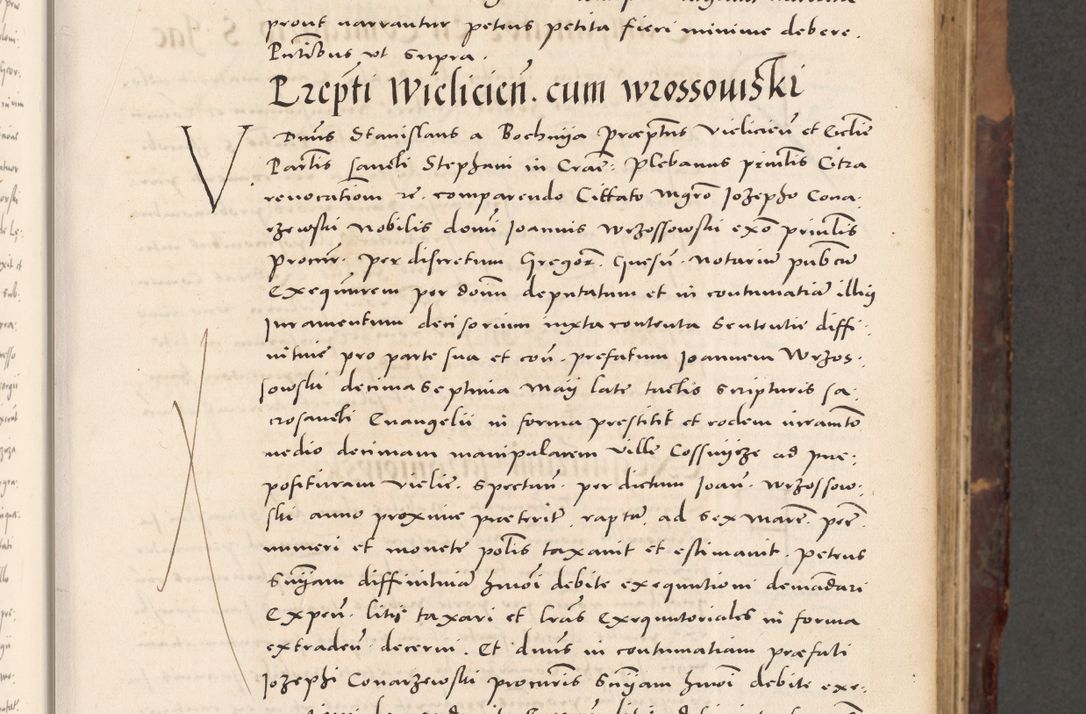 prout narrantur petens petita fieri minime debere.
Pntibus vt supra.
Prepti Wielicien. cum wrossouiski
Vdnus Stanislaus a Bochnya Præptus Vielicien et Ecclie
Parlis sancti Stephani in Crac: Plebanus priulis Citra
reuocationem re. comparendo Cittato mgro Jozepho Cona:
rzewski nobilis domi Joannis Wrzossowski exo priulis
procur. per discretum Gregor. notariu pubcu
Exequutrem per domi deputatum et in contumatia illius
Juramentum decisorium iuxta contenta Sententie diffi:
nitiuæ pro parte sua et con. prefatum Joannem Wrzos:
sowski decima septima Maij late tactis scripturis sa:
crosancti Euangelii in forma prestitit et eodem iuramto
medio decimam manipularem Ville Cossmijrze ad præ:
posituram Vielic. spectan. per dictum Joan. Wrzossow:
ski anno proxime præterito, rapta, ad sex marc. pec.
numeri et monete polis taxauit et estimauit. petens
Snijam diffinitiua hmoi debite exequutioni demadari
Expen. litis taxari et lras Exequutoriales in forma
extraden. decerni. Et dnus in contumatiam præfati
Jozephi Conarzewski procuris Snijam hmoi debite exe: